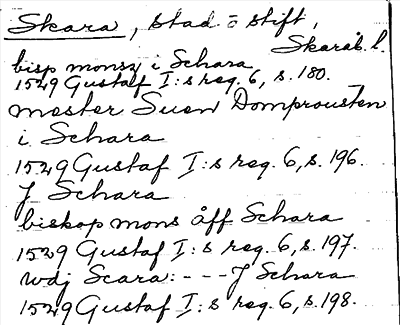 Skara, stad o stift,
Skarab. l.
bisp monss i Schara
1529 Gustaf I:s reg. 6, s. 180.
mester Suen Domprousten
i Schara
1529 Gustaf I:s reg. 6, s. 196.
J Schara
biskop mons åff Schara
1529 Gustaf I:s reg. 6, s. 197.
wdj Scara: - - - J Schara
1529 Gustaf I:s reg. 6, s. 198.